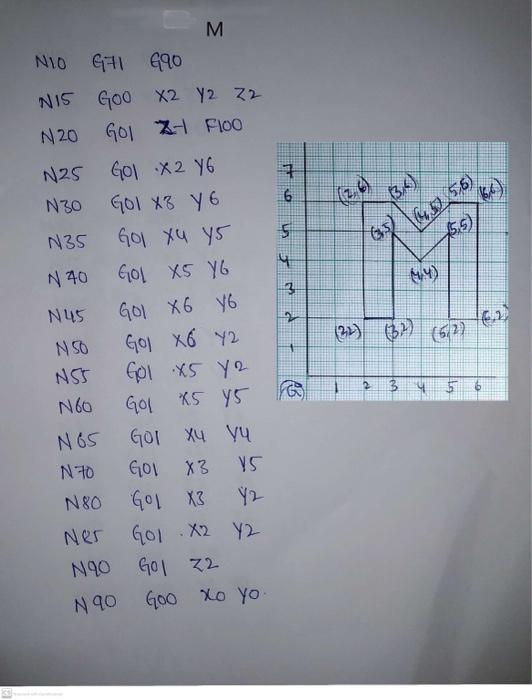 M
N10 G71 G90
N15 G00 X2 Y2 Z2
N20 G01 Z-1 F100
N25 G01 X2 Y6
N30 G01 X3 Y6
N35 G01 X4 Y5
N40 G01 X5 Y6
N45 G01 X6 Y6
N50 G01 X6 Y2
N55 G01 X5 Y2
N60 G01 X5 Y5
N65 G01 X4 Y4
N70 G01 X3 Y5
N80 G01 X3 Y2
N85 G01 X2 Y2
N90 G01 Z2
N90 G00 X0 Y0.
7
6 (2,6) (3,6) (5,6) (6,6)
(4,5)
5 (3,5) (5,5)
4 (4,4)
3
2 (2,2) (3,2) (5,2) (6,2)
1
1 2 3 4 5 6
CS